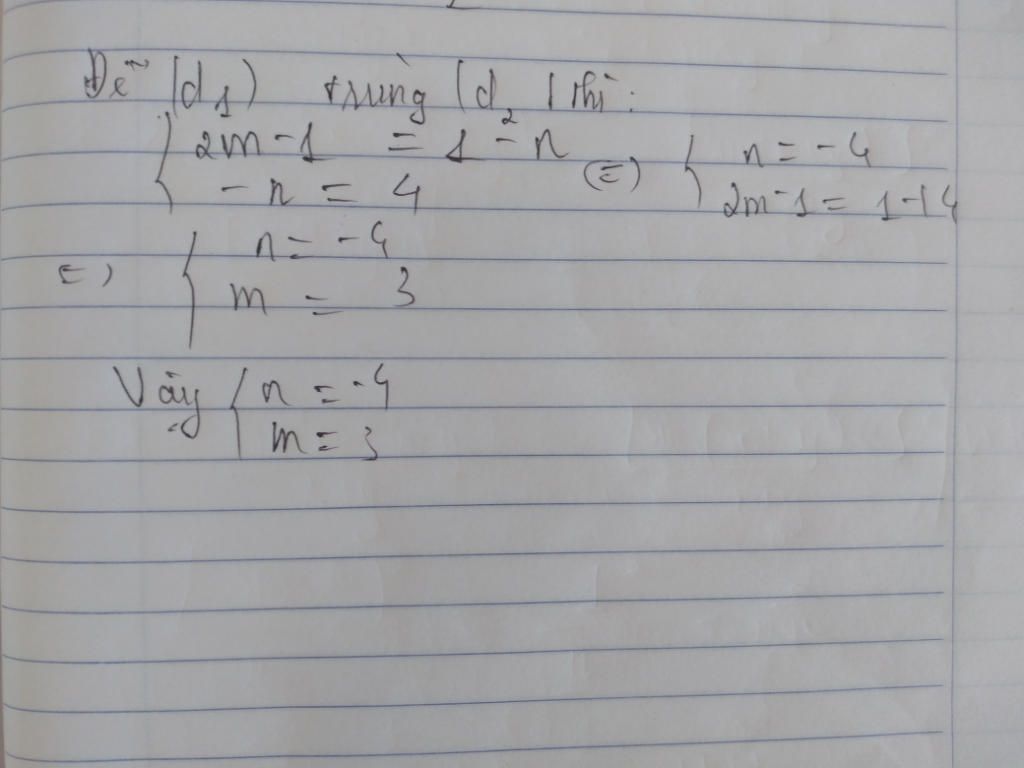 Để (d1) trùng (d2) thì:
{ 2m - 1 = 1 - n
- n = 4
(=) { n = -4
2m - 1 = 1 + 4
(=) { n = -4
m = 3
Vậy { n = -4
m = 3